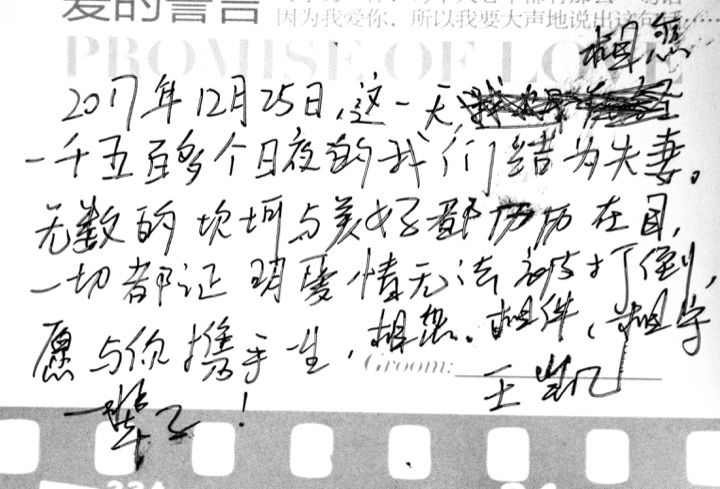 爱的誓言
因为我爱你，所以我要大声地说出这句
PROMISE OF LOVE
相恋
2017年12月25日，这一天，
一千五百多个日夜的我们结为夫妻。
无数的坎坷与美好都历历在目，
一切都证明爱情无法被打倒，
愿与你携手一生，相恋、相伴、相守
Groom:
王凯
一辈子！